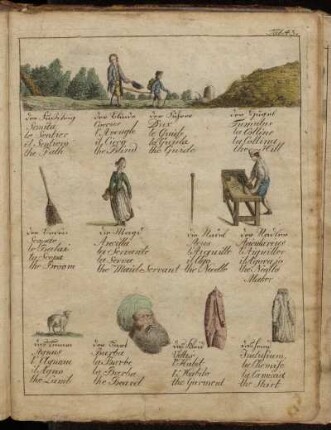 Tab. 43.
der Fußsteig der Blinde der Führer der Hügel
Semita Coecus Dux Tumulus
le Sentier l'Aveugle le Guide la Colline
il Sentiero il Cieco la Guida la Collina
the Path the Blind the Guide the Hill
der Besen die Magd die Nadel der Nadler
Scopae Ancilla Acus Acicularius
le Balai la Servante l'Aiguille l'Aiguillier
la Scopa la Serva l'Ago l'Agorajo
the Broom the Maid Servant the Needle the Needle
Maker
das Lamm der Bart das Kleid das Hemd
Agnus Barba Vestis Indusium
l'Agneau la Barbe l'Habit la Chemise
l'Agno la Barba l'Abito la Camicia
the Lamb the Beard the Garment the Shirt